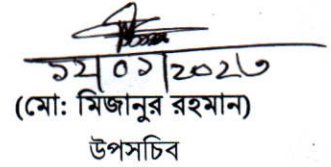 ১২|০১|২০২৩
(মো: মিজানুর রহমান)
উপসচিব